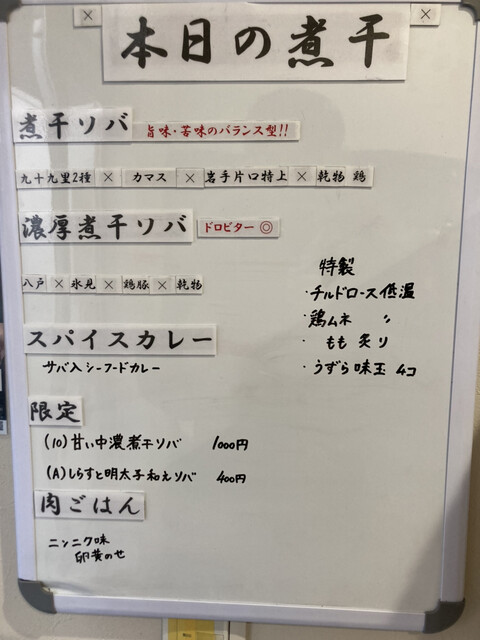 本日の煮干
煮干ソバ 旨味・苦味のバランス型!!
九十九里2種 × カマス × 岩手片口特上 × 乾物 鶏
濃厚煮干ソバ ドロビター ◎
八戸 × 氷見 × 鶏豚 × 乾物
特製
・チルドロース低温
・鶏ムネ 〃
・ もも 炙り
・うずら味玉 4コ
スパイスカレー
サバ入シーフードカレー
限定
(10)甘い中濃煮干ソバ 1000円
(A)しらすと明太子和えソバ 400円
肉ごはん
ニンニク味
卵黄のせ